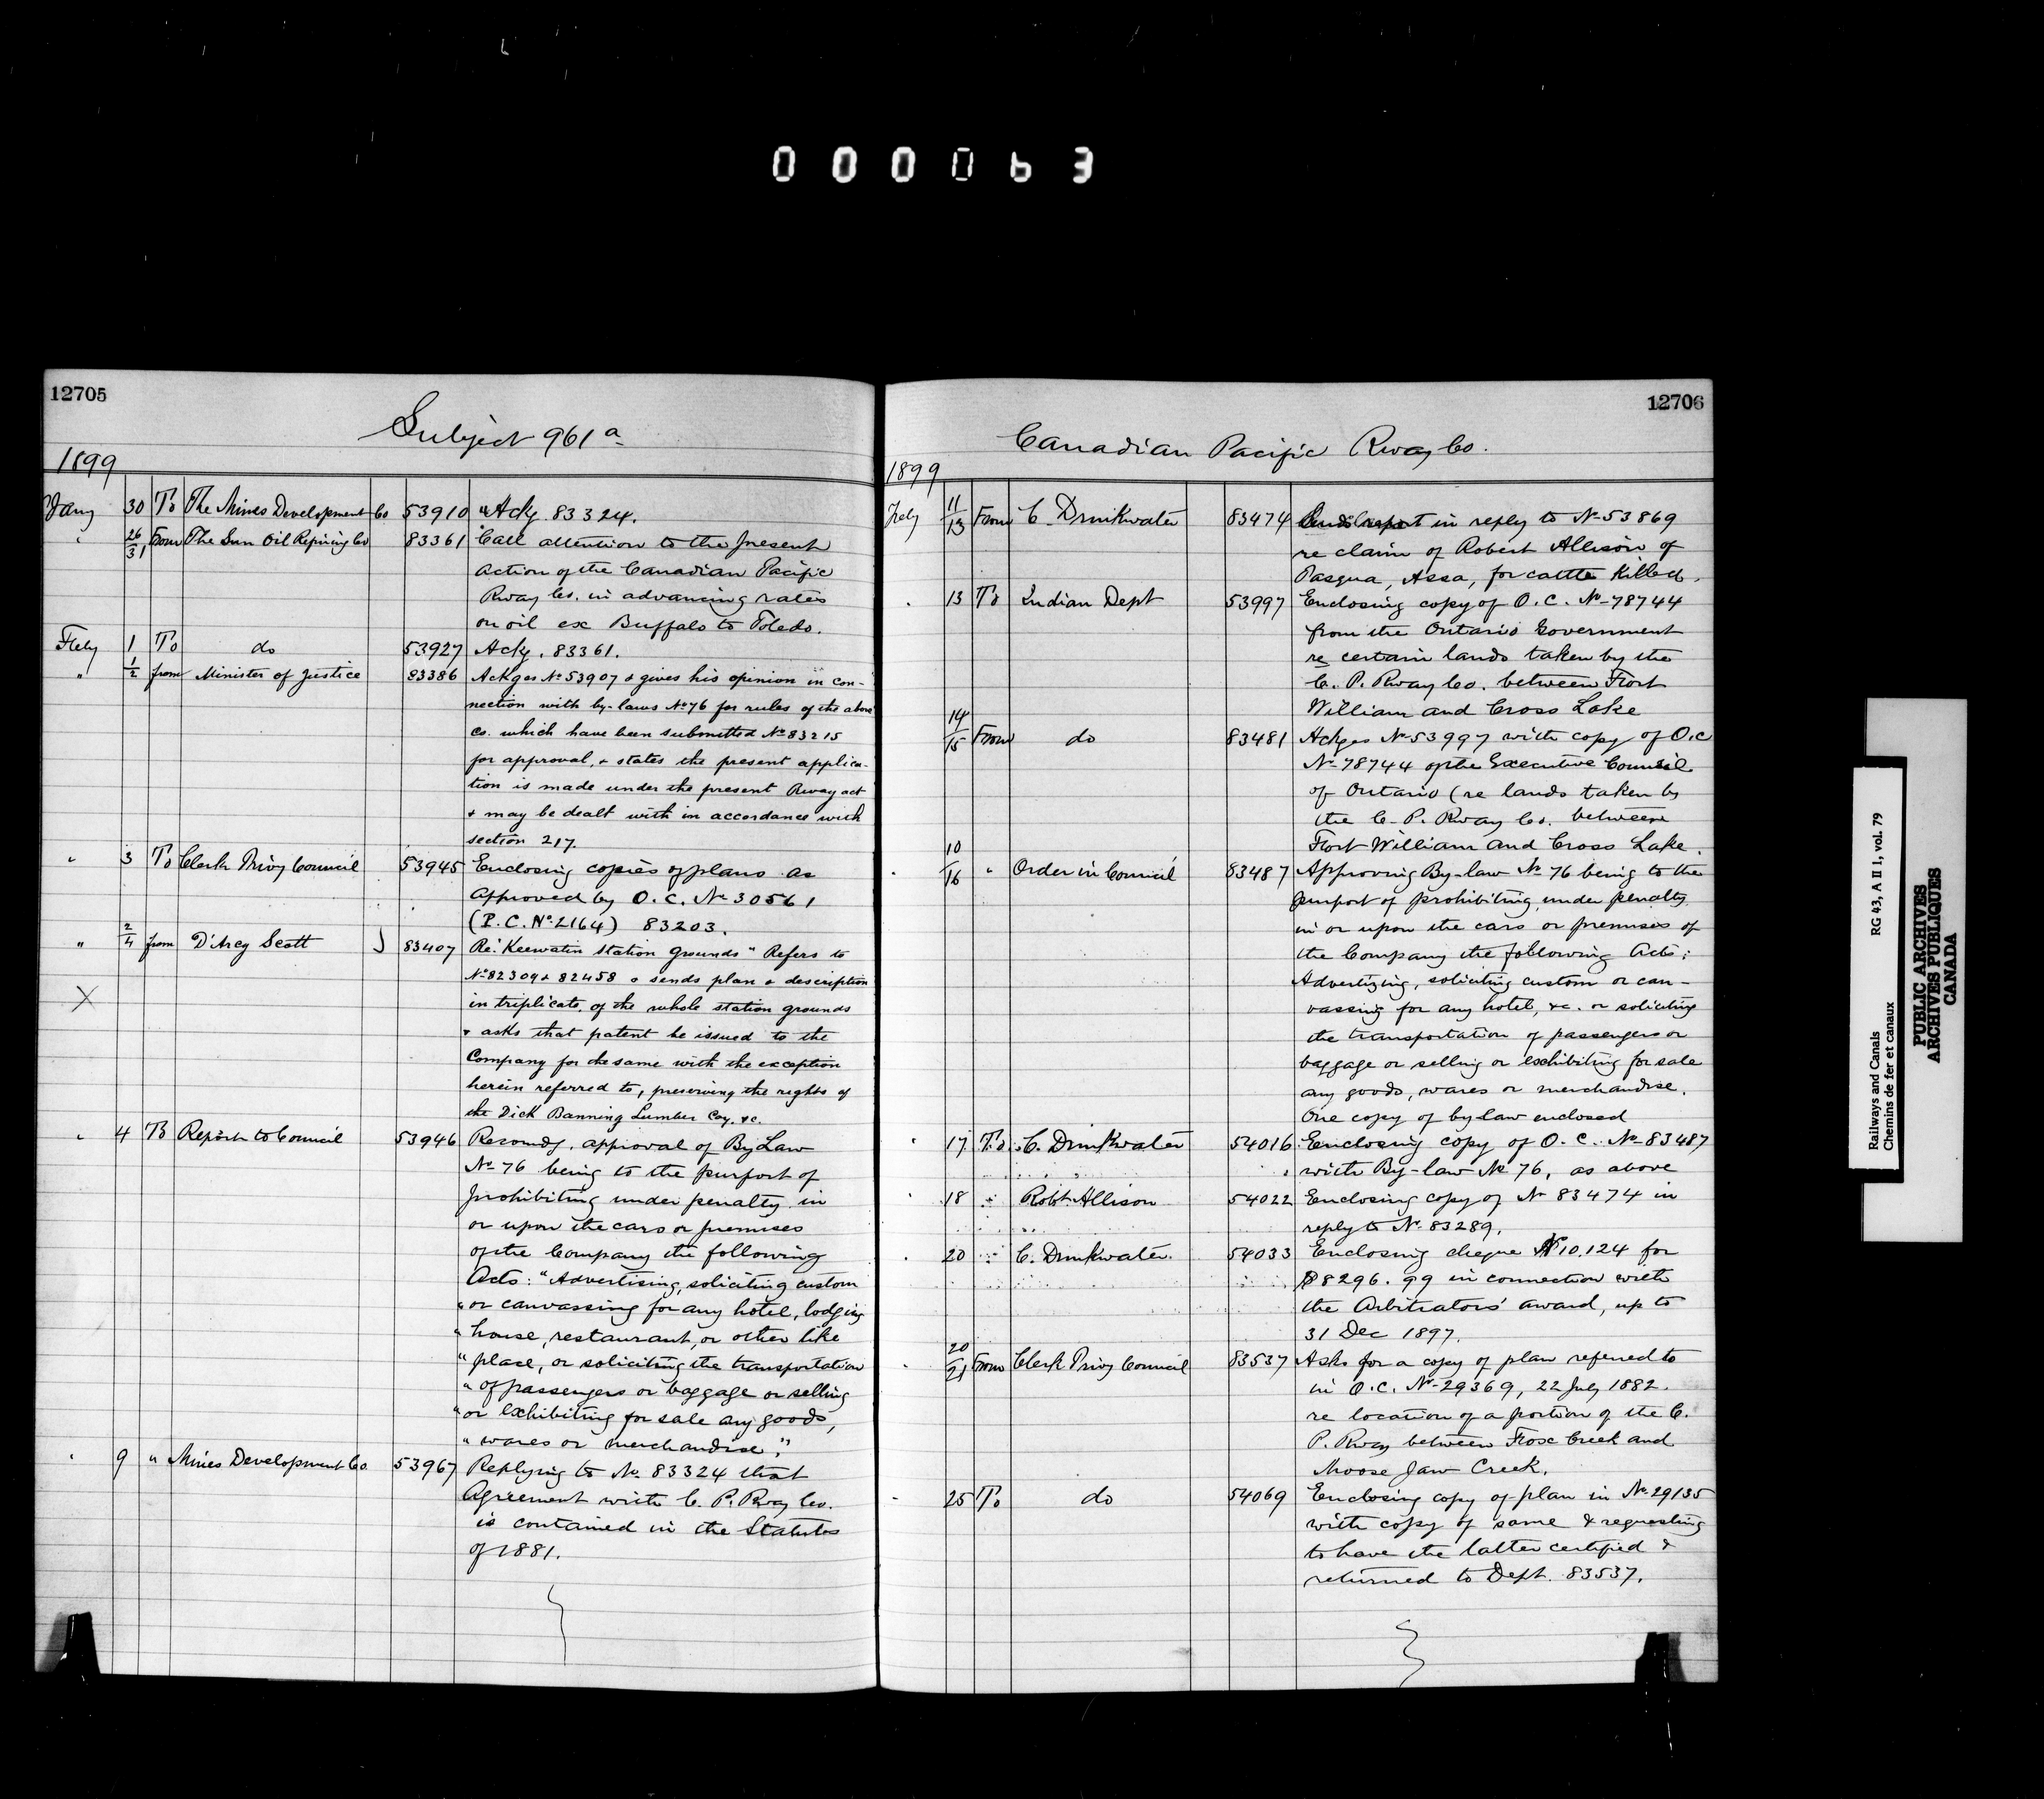 000063
12705
Subject 961a
1899
Jany 30 To The Mines Development Co 53910 "Ackg. 83324.
" 26/31 From The Sun Oil Refining Co 83361 Call attention to the present
action of the Canadian Pacific
Rway Co. in advancing rates
on oil ex Buffalo to Toledo.
Feby 1 To do 53927 Ackg. 83361.
" 1/2 from Minister of Justice 83386 Ackges No 53907 & gives his opinion in con-
nection with by-laws No 76 for rules of the above
Co. which have been submitted No 83215
for approval, & states the present applica-
tion is made under the present Rway act
& may be dealt with in accordance with
section 217.
" 3 To Clerk Privy Council 53945 Enclosing copies of plans as
approved by O.C. No 30561
(P.C. No 2164) 83203.
" 2/4 from D'Arcy Scott 83407 Re "Keewatin Station grounds" Refers to
No 82309 & 82458 & sends plan & description
X
in triplicate, of the whole station grounds
& asks that patent be issued to the
Company for the same with the exception
herein referred to, preserving the rights of
the Dick Banning Lumber Coy. &c.
" 4 To Report to Council 53946 Recomdg. approval of By Law
No 76 being to the purport of
prohibiting under penalty in
or upon the cars or premises
of the Company the following
Acts: "Advertising, soliciting custom
"or canvassing for any hotel, lodging
"house, restaurant, or other like
"place, or soliciting the transportation
"of passengers or baggage or selling
"or exhibiting for sale any goods,
"wares or merchandise."
" 9 " Mines Development Co 53967 Replying to No 83324 that
Agreement with C. P. Rway Co.
is contained in the Statutes
of 1881.
12706
Canadian Pacific Rway Co.
1899
Feby 11/13 From C. Drinkwater 83474 Sends report in reply to No 53869
re claim of Robert Allison of
Pasqua, Assa, for cattle killed.
" 13 To Indian Dept 53997 Enclosing copy of O.C. No 78744
from the Ontario Government
re certain lands taken by the
C. P. Rway Co. between Fort
William and Cross Lake
14/15 From do 83481 Ackges No 53997 with copy of O.C
No 78744 of the Executive Council
of Ontario (re lands taken by
the C. P. Rway Co. between
Fort William and Cross Lake.
" 10/16 " Order in Council 83487 Approving By-law No 76 being to the
purport of prohibiting, under penalty
in or upon the cars or premises of
the Company the following Acts:
Advertizing, soliciting custom or can-
vassing for any hotel, &c. or soliciting
the transportation of passengers or
baggage or selling or exhibiting for sale
any goods, wares or merchandise.
One copy of by law enclosed
" 17 To C. Drinkwater 54016 Enclosing copy of O.C. No 83487
with By-law No 76, as above
" 18 " Robt. Allison 54022 Enclosing copy of No 83474 in
reply to No 83289.
" 20 " C. Drinkwater. 54033 Enclosing cheque No 10.124 for
$8296.99 in connection with
the Arbitrators' award, up to
31 Dec 1897.
" 20/21 From Clerk Privy Council 83537 Asks for a copy of plan referred to
in O.C. No 29369, 22 July 1882.
re location of a portion of the C.
P. Rway between Flose Creek and
Moose Jaw Creek.
" 25 To do 54069 Enclosing copy of plan in No 29135
with copy of same & requesting
to have the latter certified &
returned to Dept. 83537.
Railways and Canals RG 43, A II 1, vol. 79
Chemins de fer et canaux
PUBLIC ARCHIVES
ARCHIVES PUBLIQUES
CANADA